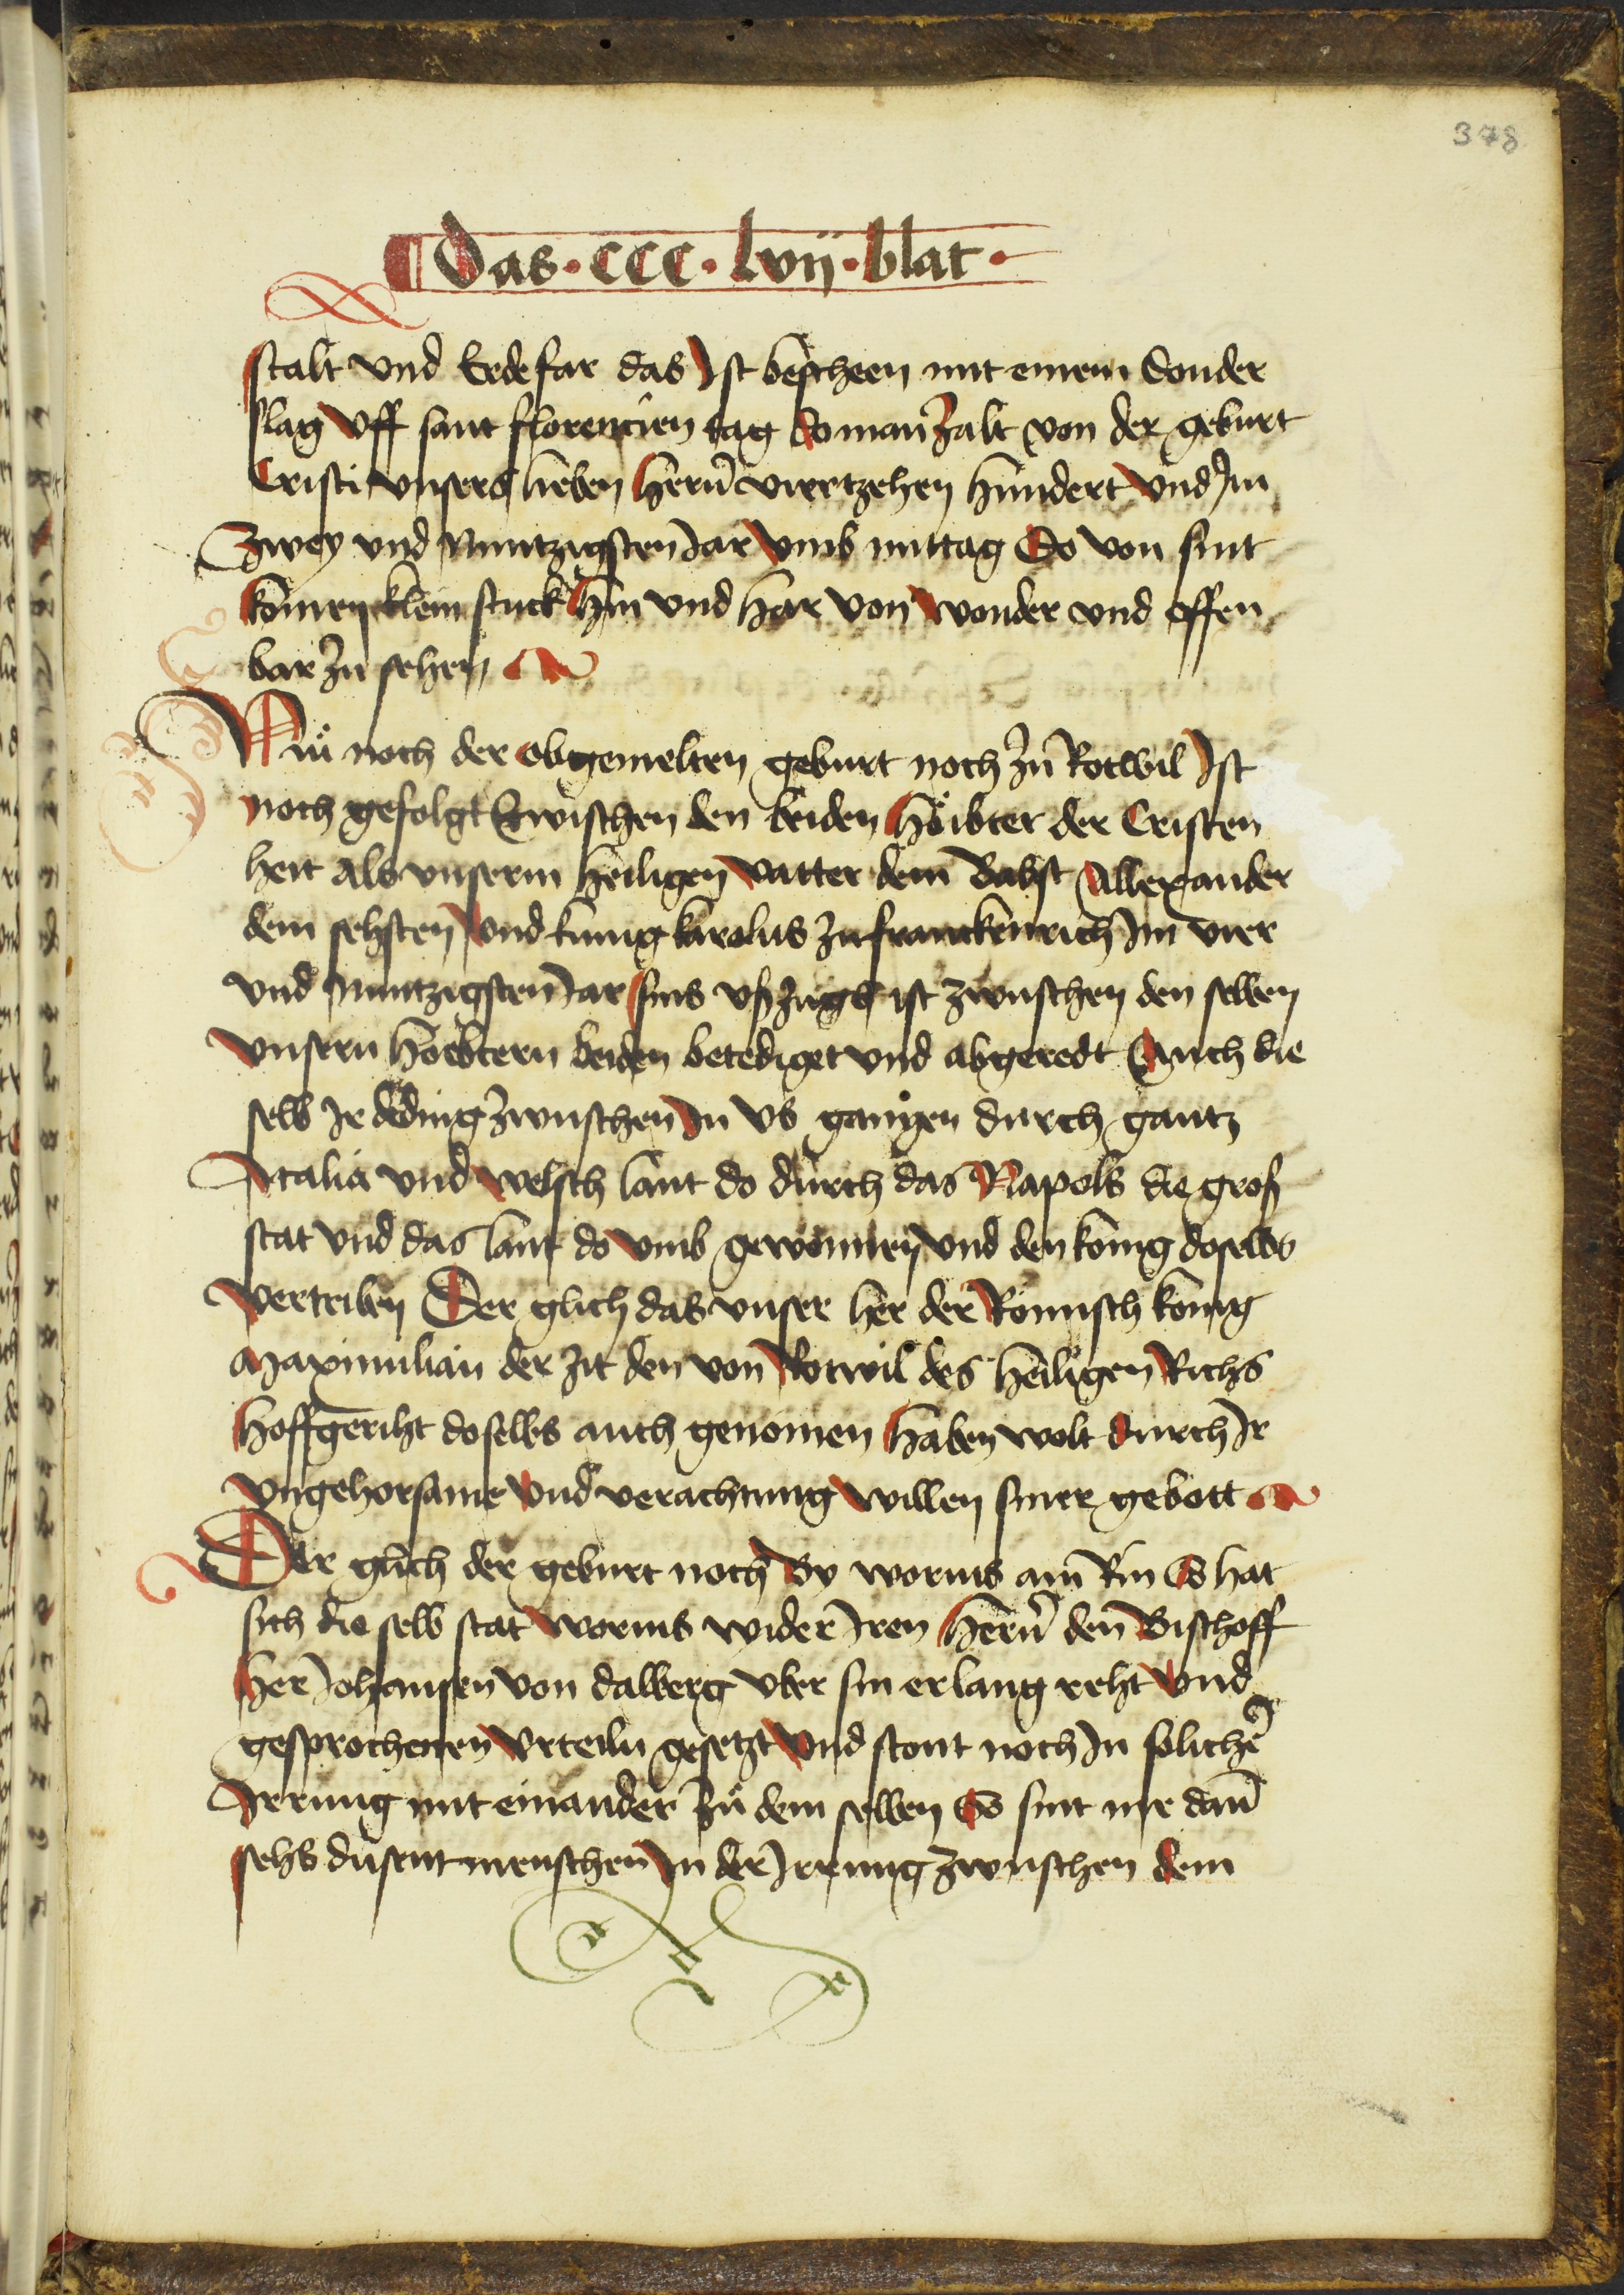 378
Das · CCC · lvij · blat ·
stalt vnd Erdefar das Ist bescheen mit einem Donder
slag Vff sant florencien tag Do man Zalt von der geburt
Cristi vnsers lieben Hernn viertzehen Hundert vnd Im
Zwey vnd Nuntzigsten Jar Vmb mittag Do von sint
komen klein stuck Hin vnd Har von Wonder vnd offen
bar Zu sehen
Nu noch der obgemelten geburt noch Zu Rotwil Ist
noch gefolgt Zwischen den beiden Höibter der Cristen
heit Als vnserm Heiligen Vatter dem Babst Allexander
dem sehsten Vnd kunig karolus Zu franckenrich Im vier
vnd Nuntzigsten Jar sins vßzugs ist zwuschen den selben
Vnsern Hoebtern beiden betediget vnd abgeredt Auch die
selb Ir deding Zwuschen In vs gangen durch gantz
Italia vnd welsch lant do durch das Napols die groß
stat vnd das lant do Vmb gewonnen vnd den konig doselbs
Vertriben Der glich das vnser her der Römisch konig
Maximilian der zit den von Rotwil des Heiligen Richs
Hoffgeriht doselbs auch genomen Haben wolt Durch Ir
Vngehorsame Vnd verachtung Willen siner gebott
Der glich der geburt noch By worms am Rin So hat
sich die selb stat Worms wider Iren Hernn den Bischoff
Her Johansen von dalberg vber sin erlang reht Vnd
gesprochenen Vrteiln gesetzt Vnd stont noch In solicher
Irrung mit einander Zu dem selben So sint me dann
sehs dusent menschen In der Irrung zwuschen dem